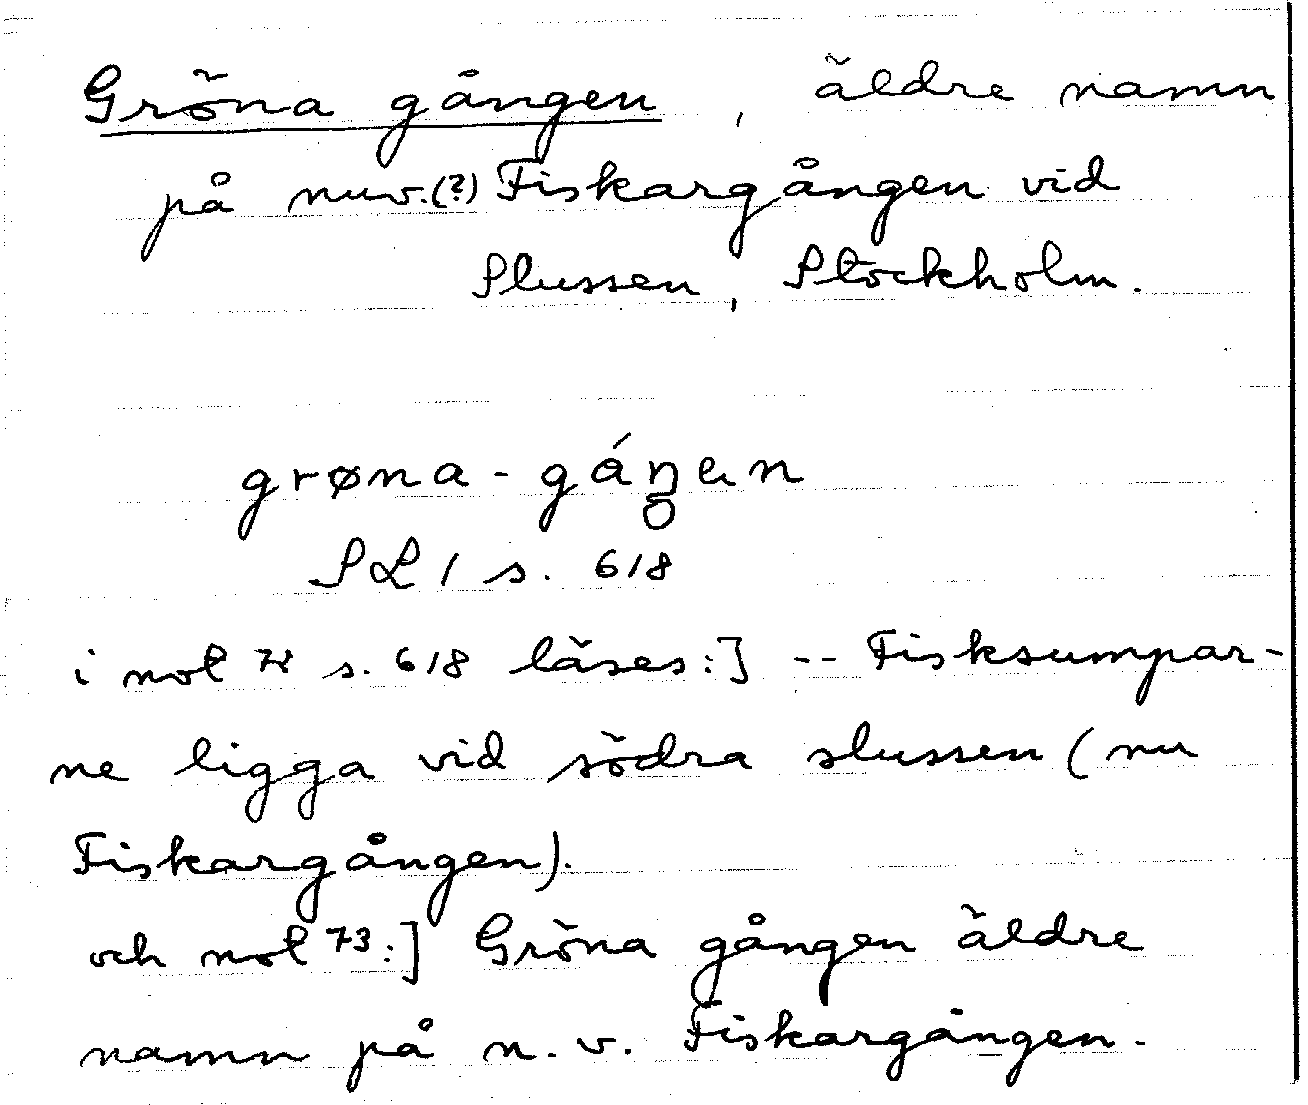 Gröna gången, äldre namn
på nuv.(?) Fiskargången vid
Slussen, Stockholm.
grøna-gáŋ̥en
SL 1 s. 618
i not 72 s. 618 läses:] -- Fisksumpar-
ne ligga vid södra slussen (nu
Fiskargången).
och not 73:] Gröna gången äldre
namn på n.v. Fiskargången.